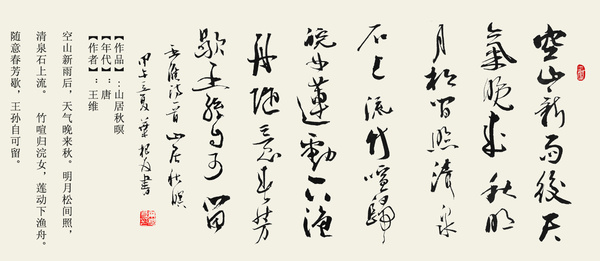 空山新雨後天
氣晚來秋明
月松間照清泉
石上流竹喧歸
浣女蓮動下漁
舟随意春芳
歇王孫自可留
王維詩一首 山居秋暝
甲午夏 書
【作品】：山居秋暝
【年代】：唐
【作者】：王维
空山新雨后，天气晚来秋。明月松间照，
清泉石上流。 竹喧归浣女，莲动下渔舟。
随意春芳歇，王孙自可留。